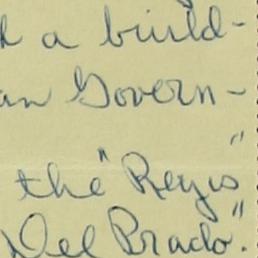 a build-
Govern-
the "Regis"
Del Prado".